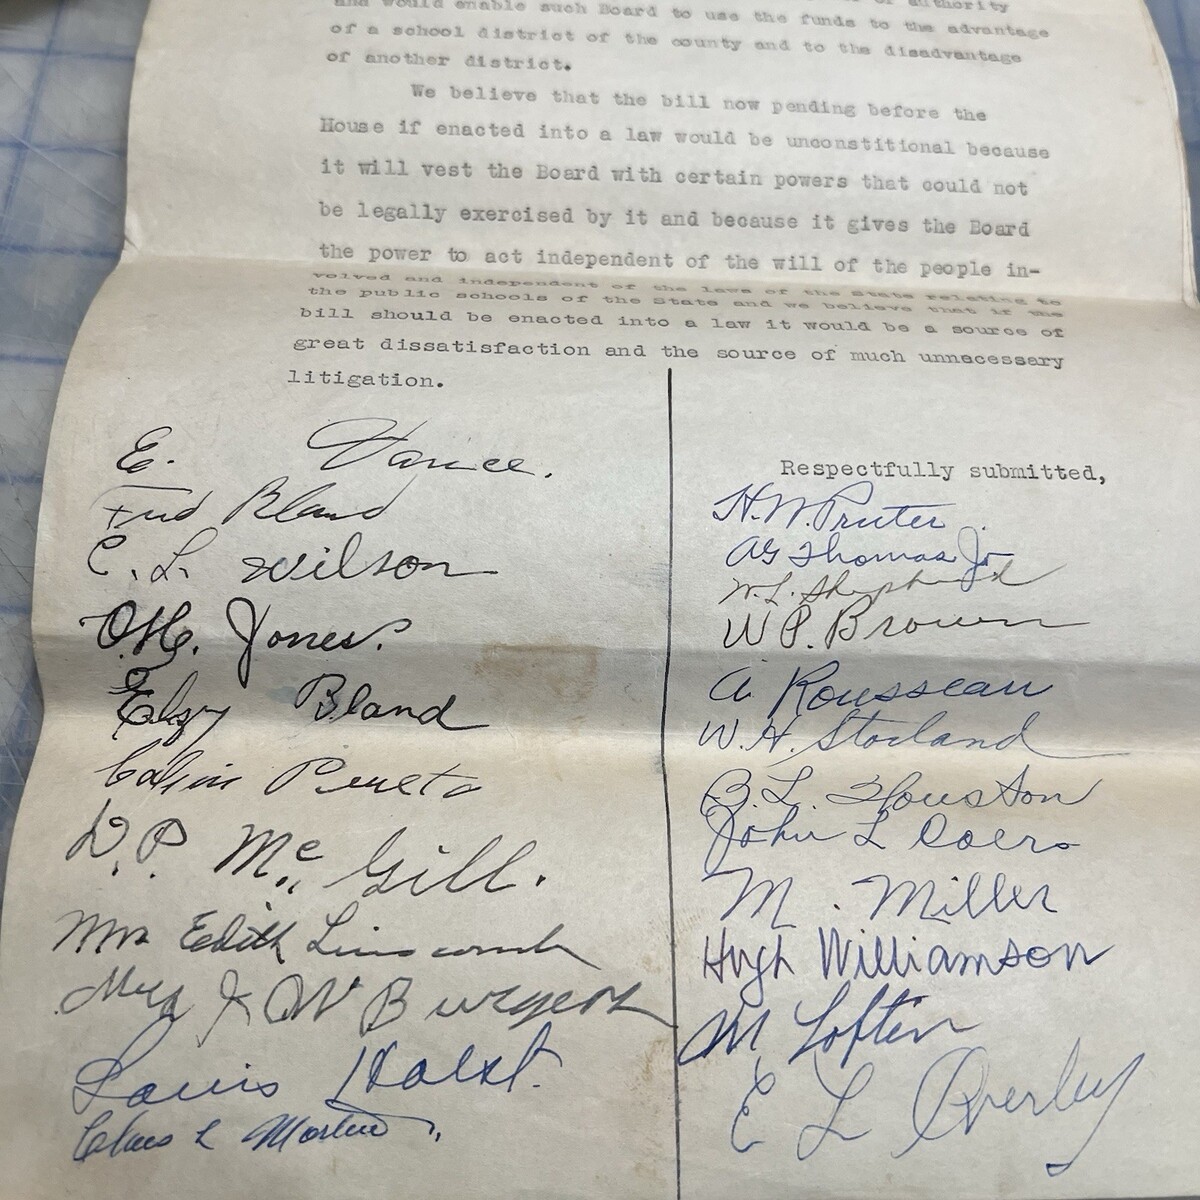 authority
and would enable such Board to use the funds to the advantage
of a school district of the county and to the disadvantage
of another district.
We believe that the bill now pending before the
House if enacted into a law would be unconstitional because
it will vest the Board with certain powers that could not
be legally exercised by it and because it gives the Board
the power to act independent of the will of the people in-
volved and independent of the laws of the State relating to
the public schools of the State and we believe that if the
bill should be enacted into a law it would be a source of
great dissatisfaction and the source of much unnecessary
litigation.
E. Vance.
Fred Bland
C. L. Wilson
O.H. Jones.
Elzy Bland
D. P. McGill.
Mrs Edith Linscomb
J W Burgess
Louis
L
Respectfully submitted,
H. W. Pruter.
AG Thomas Jr
W. L. Shepherd
W P. Brown
A Rousseau
W. H. Storland
B. L. Houston
John L Doers
M. Miller
Hugh Williamson
M Loftin
E L Overley